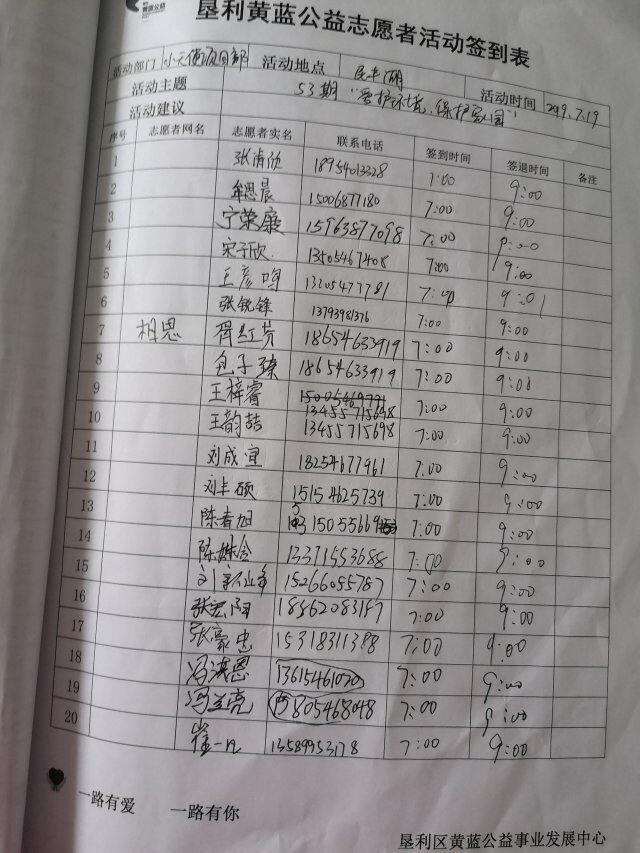 黄蓝公益
垦利黄蓝公益志愿者活动签到表
活动部门 活动地点 民丰湖 活动时间 2019.7.19
活动主题 53期 "爱护环境、保护家园"
活动建议
序号 志愿者网名 志愿者实名 联系电话 签到时间 签退时间 备注
1 18954013328 7:00 9:00
2 牟思晨 15006877180 7:00 9:00
3 宁荣廉 15963877098 7:00 9:00
4 宋子欣 13505467408 7:00 9:00
5 王彦鸣 7:00 9:01
6 张锐锋 13793981376 7:00 9:00
7 相思 18654633919 7:00 9:00
8 包子臻 18654633919 7:00 9:00
9 王梓睿 13455715698 7:00 9:00
10 王韵喆 13455715698 7:00 9:00
11 刘成宣 18254677961 7:00 9:00
12 刘丰硕 15154625739 7:00 9:00
13 陈春旭 7:00 9:00
14 13371553688 7:00 9:00
15 15266055787 7:00 9:00
16 7:00 9:00
17 张豪忠 15318311388 7:00 9:00
18 冯淇恩 13615461020 7:00 9:00
19 冯兰亮 15805468048 7:00 9:00
20 崔一凡 13589953178 7:00 9:00
一路有爱 一路有你
垦利区黄蓝公益事业发展中心